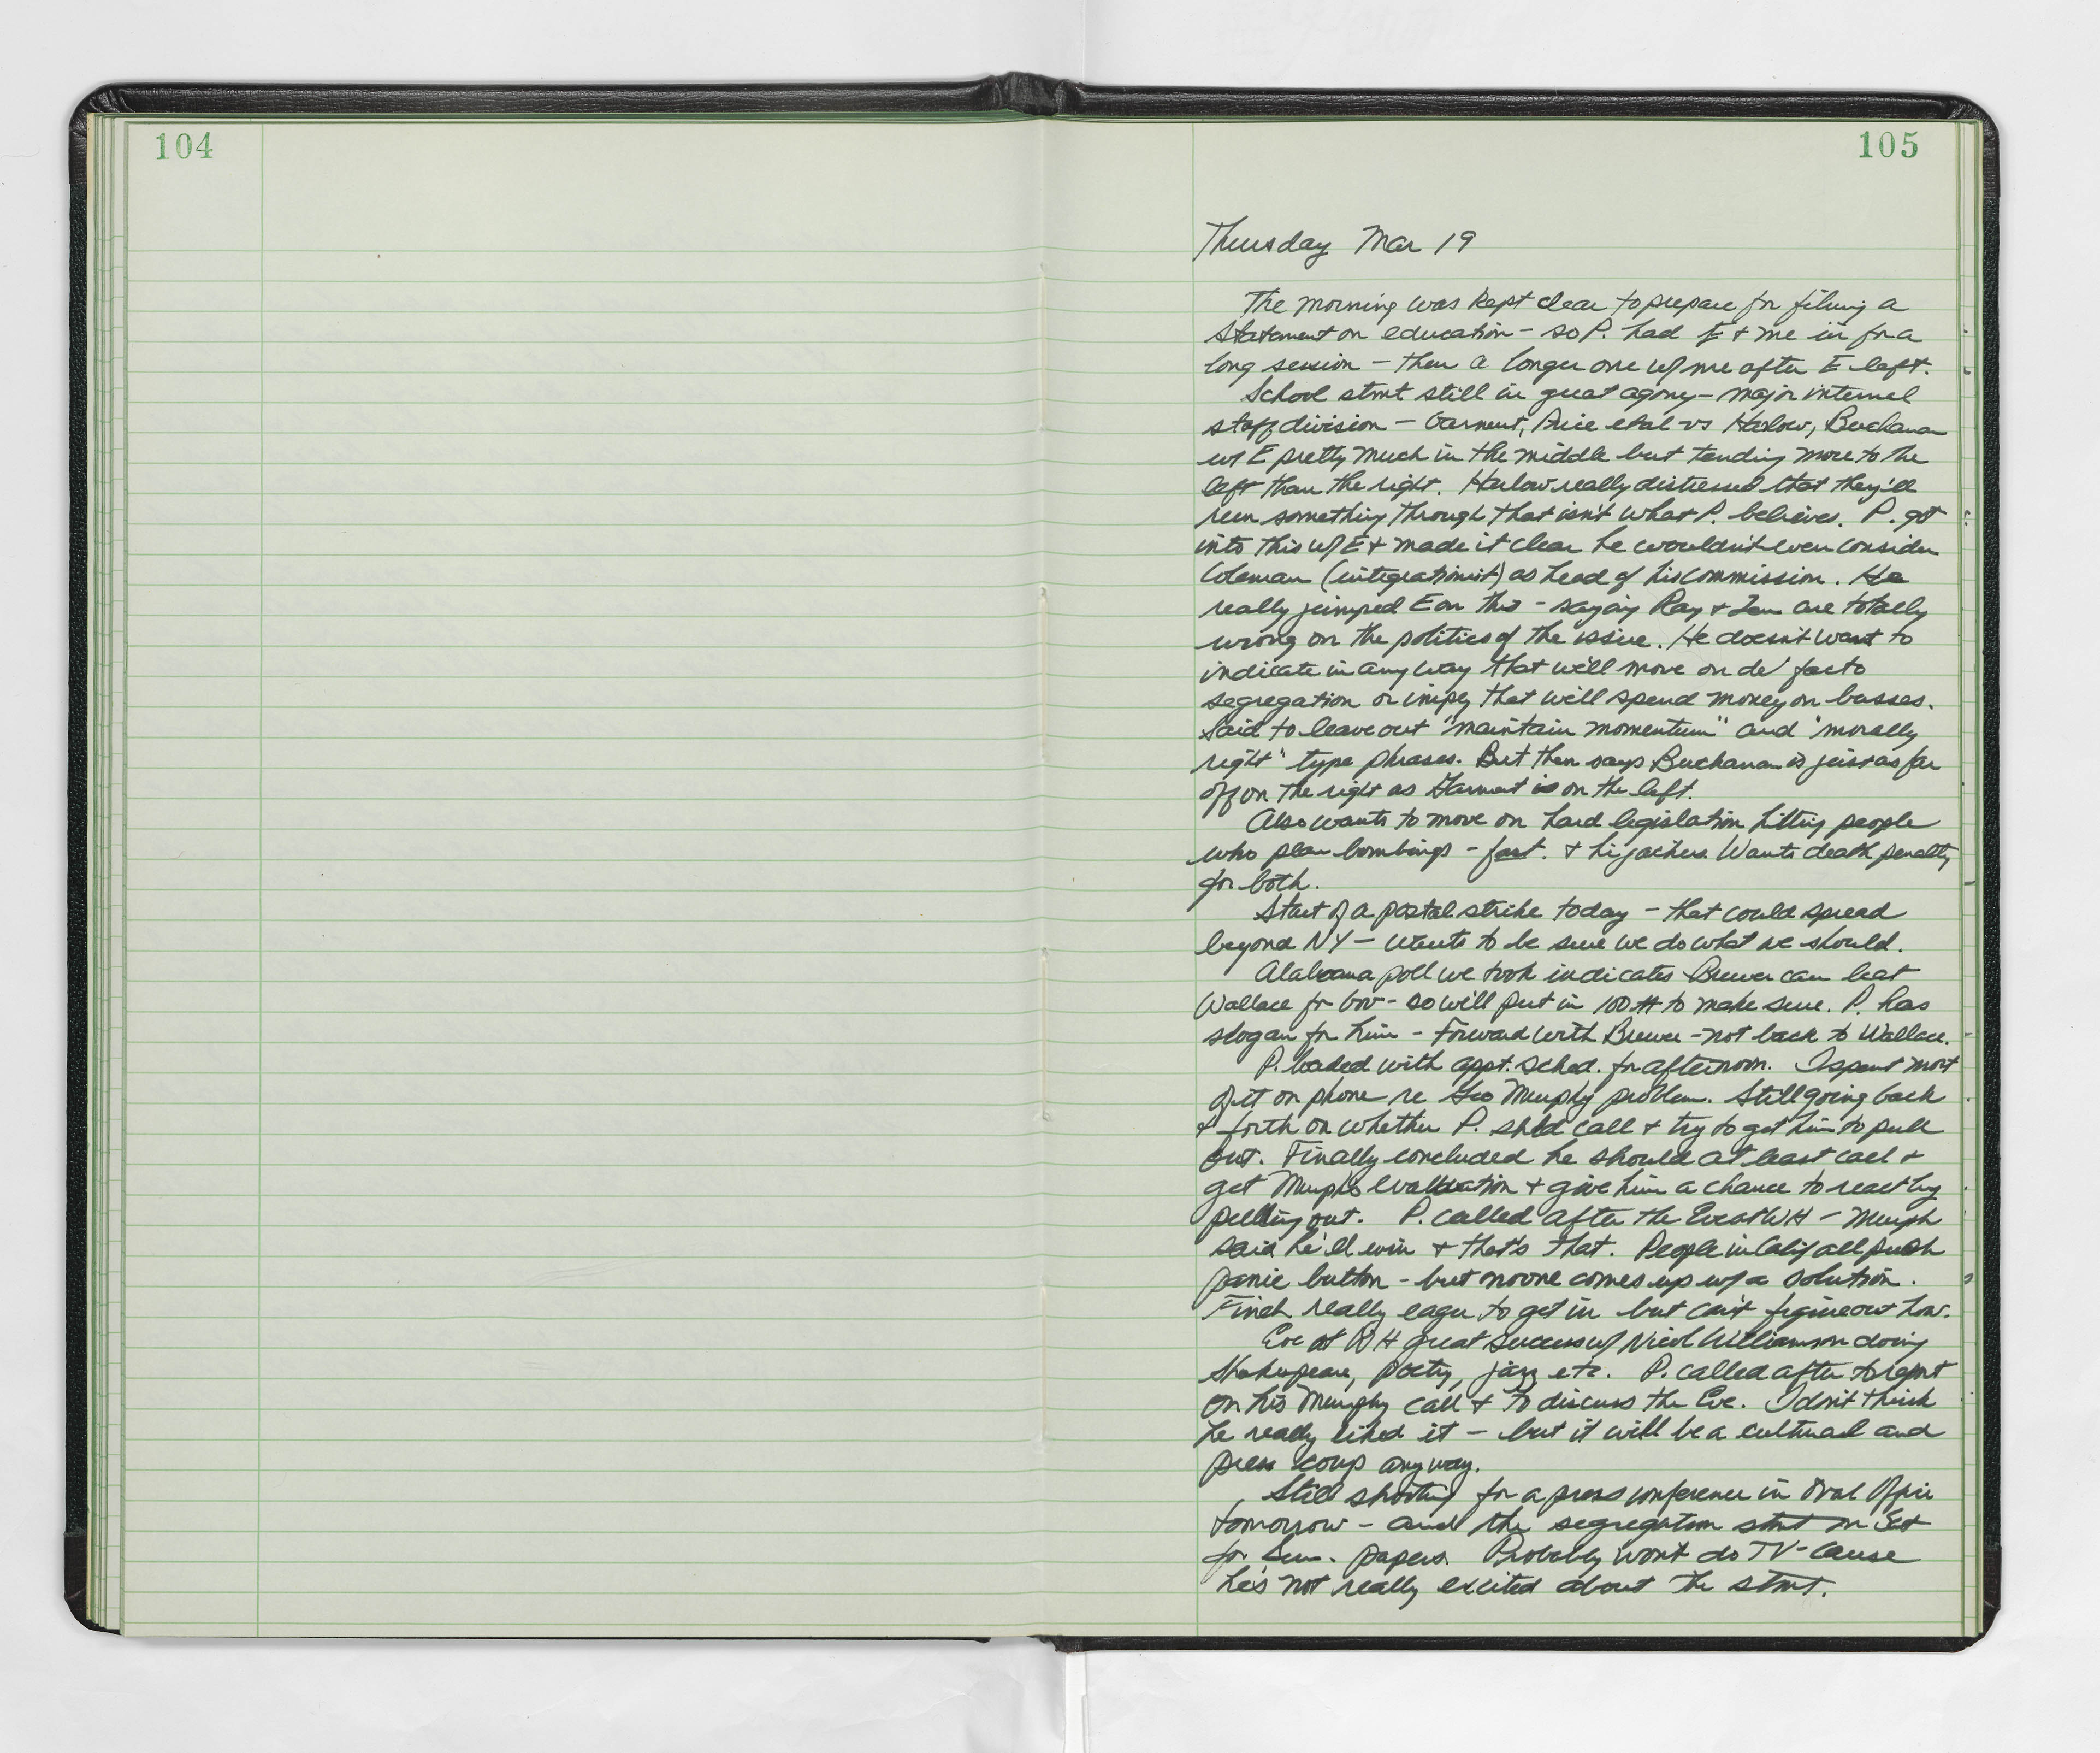 104
105
Thursday Mar 19
The morning was kept clear to prepare for filming a
statement on education - so P. had E + me in for a
long session - then a longer one w/ me after E left.
School stmt still in great agony - major internal
staff division - Garment, Price et al vs Harlow, Buchanan
w/ E pretty much in the middle but tending more to the
left than the right. Harlow really distressed that they'll
run something through that isn't what P. believes. P. got
into this w/ E + made it clear he wouldn't even consider
Coleman (integrationist) as head of his commission. He
really jumped E on this - saying Ray + Len are totally
wrong on the politics of the issue. He doesn't want to
indicate in any way that we'll move on de facto
segregation or imply that we'll spend money on busses.
Said to leave out "maintain momentum" and "morally
right" type phrases. But then says Buchanan is just as far
off on the right as Garment is on the left.
Also wants to move on hard legislation hitting people
who plan bombings - fast. + hijackers. Wants death penalty
for both.
Start of a postal strike today - that could spread
beyond NY - wants to be sure we do what we should.
Alabama poll we took indicates Brewer can beat
Wallace for Gov - so we'll put in 100 M to make sure. P. has
slogan for him - Forward with Brewer - not back to Wallace.
P. loaded with appt. sched. for afternoon. I spent most
of it on phone re Geo Murphy problem. Still going back
+ forth on whether P. shld call + try to get him to pull
out. Finally concluded he should at least call +
get Murph's evaluation + give him a chance to react by
pulling out. P. called after the Eve at WH - Murph
said he'll win + that's that. People in Calif all push
panic button - but no one comes up w/ a solution.
Finch really eager to get in but can't figure out how.
Eve at WH great success w/ Nicol Williamson doing
Shakespeare, poetry, jazz etc. P. called after to report
on his Murphy call + to discuss the Eve. I don't think
he really liked it - but it will be a cultural and
press coup anyway.
Still shooting for a press conference in Oval Office
tomorrow - and the segregation stmt on Sat
for Sun. papers. Probably won't do TV - cause
he's not really excited about the stmt.